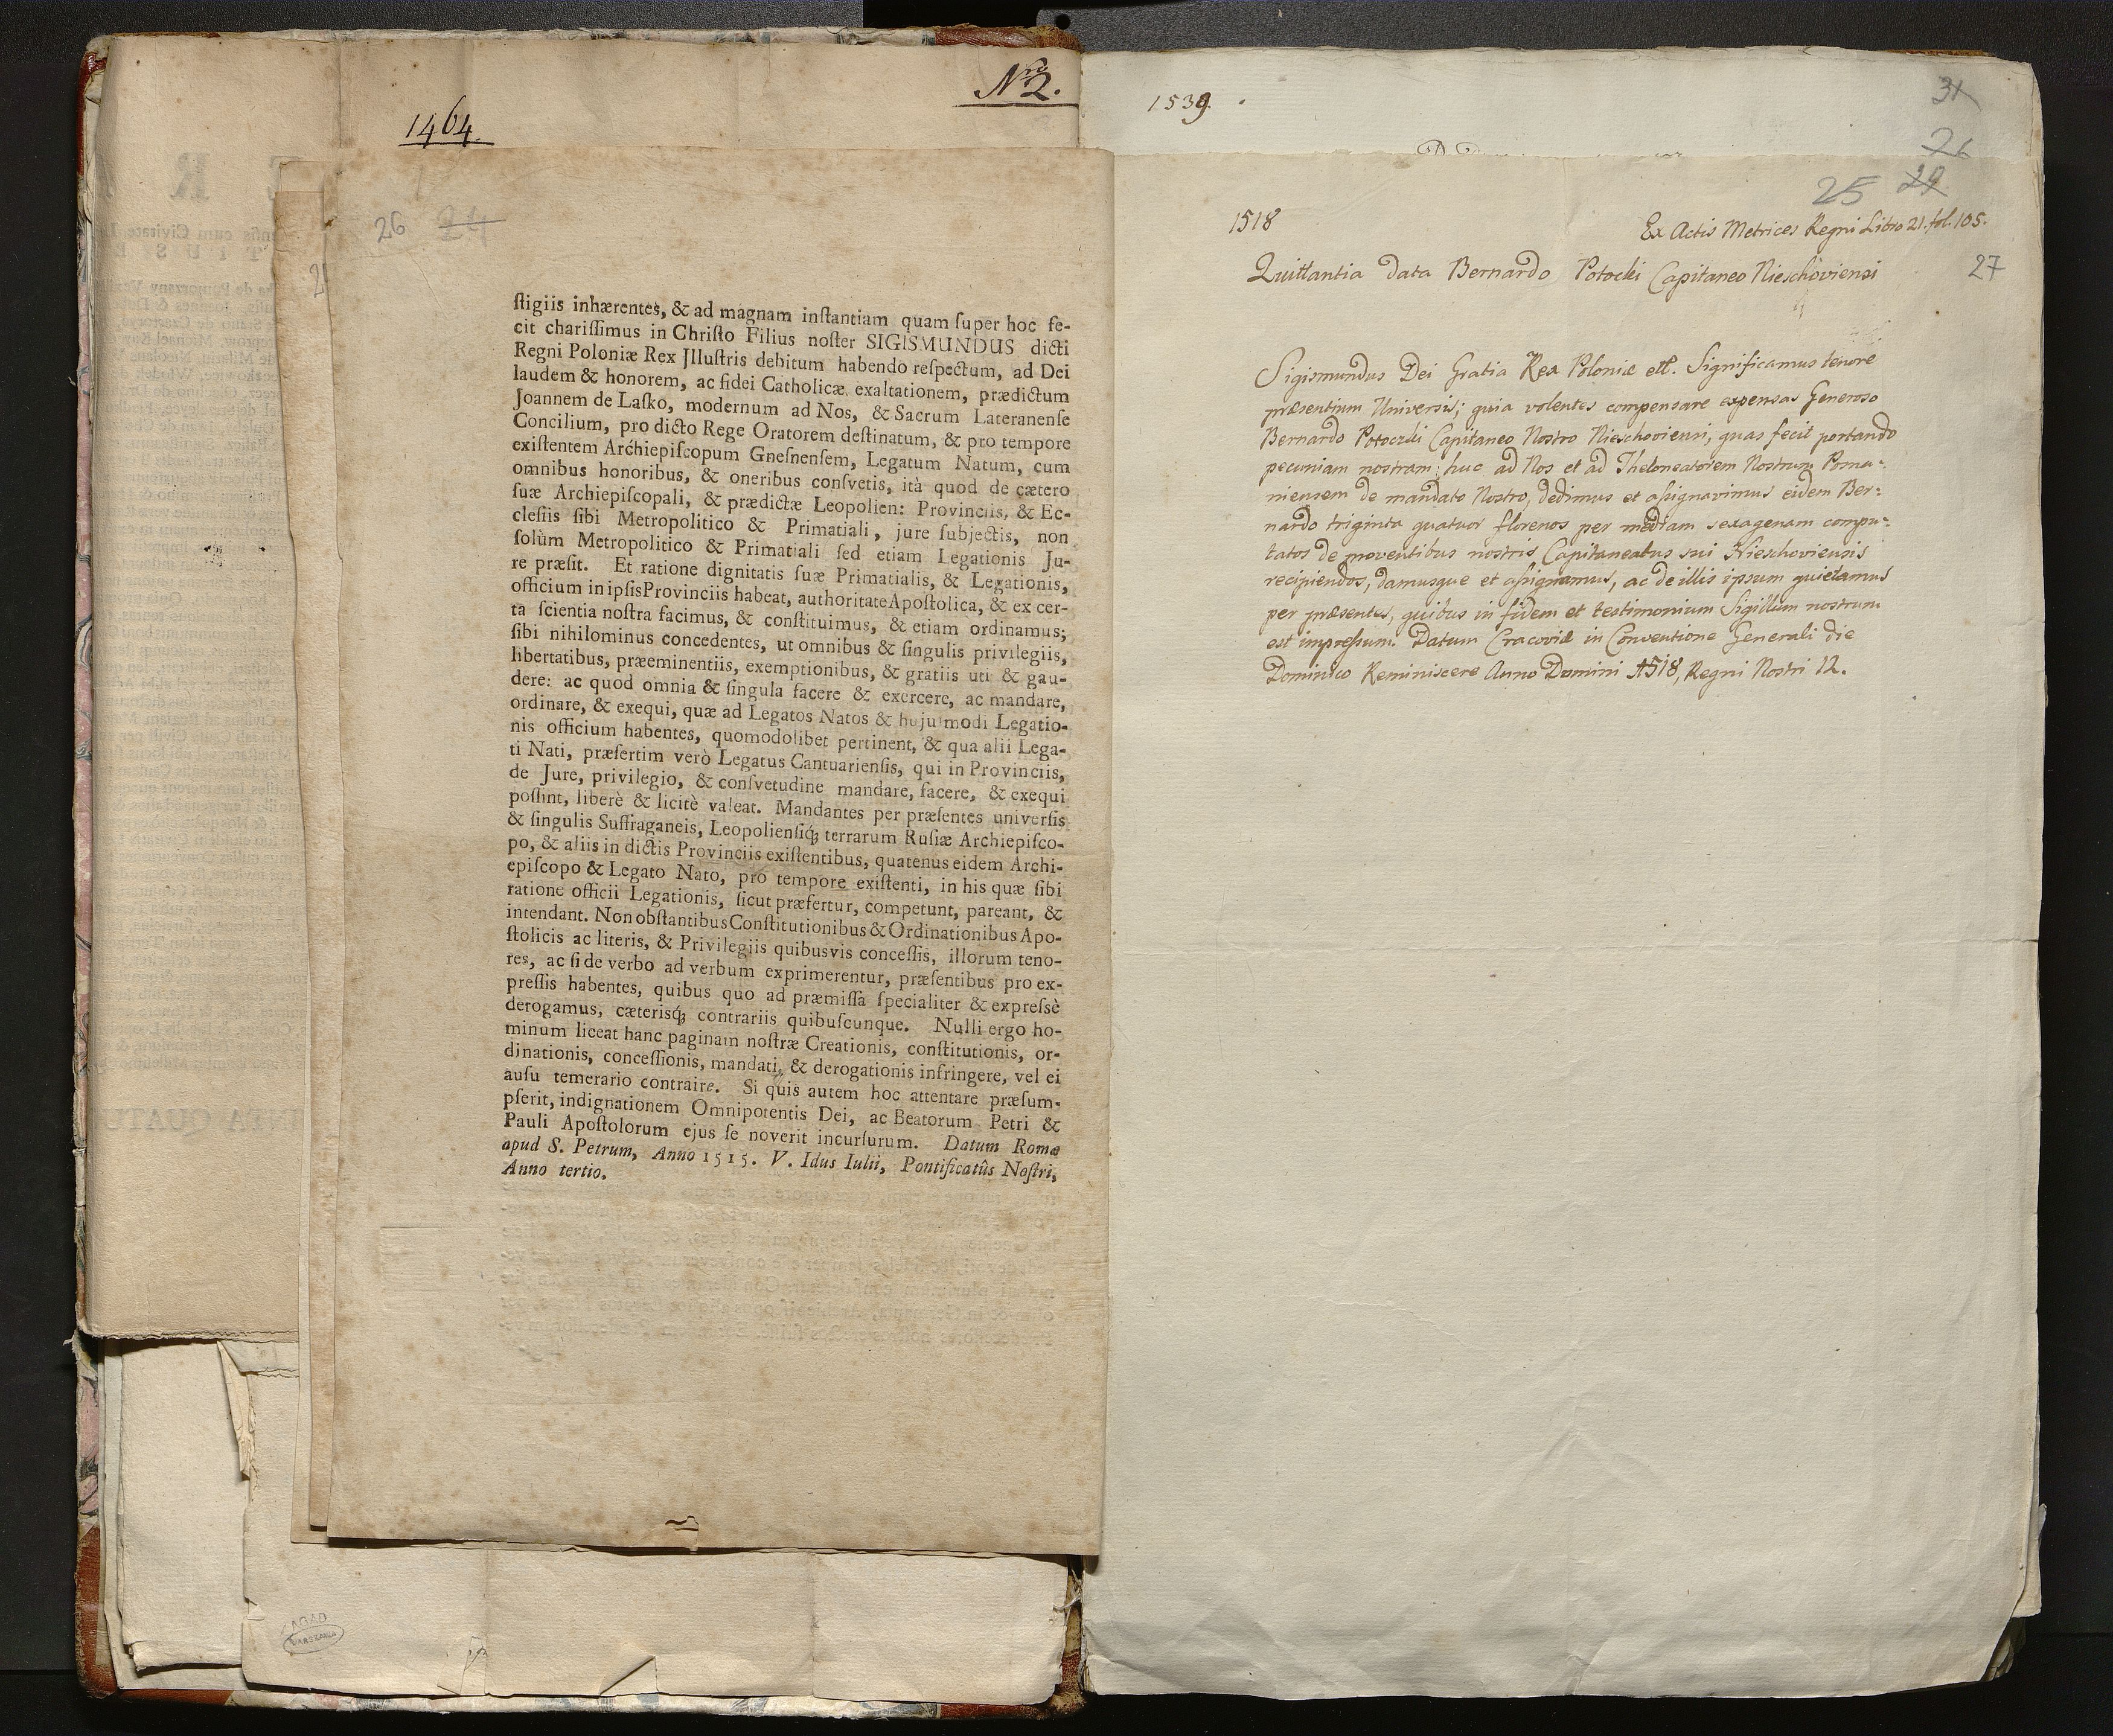 Nro 2.
1464
26 24
stigiis inhærentes, & ad magnam instantiam quam super hoc fe-
cit charissimus in Christo Filius noster SIGISMUNDUS dicti
Regni Poloniæ Rex Jllustris debitum habendo respectum, ad Dei
laudem & honorem, ac fidei Catholicæ exaltationem, prædictum
Joannem de Lasko, modernum ad Nos, & Sacrum Lateranense
Concilium, pro dicto Rege Oratorem destinatum, & pro tempore
existentem Archiepiscopum Gnesnensem, Legatum Natum, cum
omnibus honoribus, & oneribus consvetis, ità quod de cætero
suæ Archiepiscopali, & prædictæ Leopolien: Provinciis, & Ec-
clesiis sibi Metropolitico & Primatiali, jure subjectis, non
solùm Metropolitico & Primatiali sed etiam Legationis Ju-
re præsit. Et ratione dignitatis suæ Primatialis, & Legationis,
officium in ipsis Provinciis habeat, authoritate Apostolica, & ex cer-
ta scientia nostra facimus, & constituimus, & etiam ordinamus;
sibi nihilominus concedentes, ut omnibus & singulis privilegiis,
libertatibus, præeminentiis, exemptionibus, & gratiis uti & gau-
dere: ac quod omnia & singula facere & exercere, ac mandare,
ordinare, & exequi, quæ ad Legatos Natos & hujusmodi Legatio-
nis officium habentes, quomodolibet pertinent, & qua alii Lega-
ti Nati, præsertim verò Legatus Cantuariensis, qui in Provinciis,
de Jure, privilegio, & consvetudine mandare, facere, & exequi
possint, liberè & licitè valeat. Mandantes per præsentes universis
& singulis Suffraganeis, Leopoliensiq; terrarum Rusiæ Archiepisco-
po, & aliis in dictis Provinciis existentibus, quatenus eidem Archi-
episcopo & Legato Nato, pro tempore existenti, in his quæ sibi
ratione officii Legationis, sicut præfertur, competunt, pareant, &
intendant. Non obstantibus Constitutionibus & Ordinationibus Apo-
stolicis ac literis, & Privilegiis quibusvis concessis, illorum teno-
res, ac si de verbo ad verbum exprimerentur, præsentibus pro ex-
pressis habentes, quibus quo ad præmissa specialiter & expressè
derogamus, cæterisq; contrariis quibuscunque. Nulli ergo ho-
minum liceat hanc paginam nostræ Creationis, constitutionis, or-
dinationis, concessionis, mandati, & derogationis infringere, vel ei
ausu temerario contraire. Si quis autem hoc attentare præsum-
pserit, indignationem Omnipotentis Dei, ac Beatorum Petri &
Pauli Apostolorum ejus se noverit incursurum. Datum Romæ
apud S. Petrum, Anno 1515. V. Idus Iulii, Pontificatûs Nostri,
Anno tertio.
AGAD
WARSZAWA
1539.
31
26
25 29
1518
Ex Actis Metrices Regni Libro 21. fol. 105.
27
Quittantia data Bernardo Potocki Capitaneo Nieschoviensi
Sigismundus Dei Gratia Rex Poloniæ ett. Significamus tenore
præsentium Universis; quia volentes compensare expensas Generoso
Bernardo Potoczki Capitaneo Nostro Nieschoviensi, quas fecit portando
pecuniam nostram huc ad Nos et ad Theloneatorem Nostrum Pozna-
niensem de mandato Nostro, dedimus et assignavimus eidem Ber:
nardo triginta quatuor florenos per mediam sexagenam compu-
tatos de proventibus nostris Capitaneatus sui Nieschoviensis
recipiendos, damusque et assignamus, ac de illis ipsum quietamus
per præsentes, quibus in fidem et testimonium Sigillum nostrum
est impressum. Datum Cracoviæ in Conventione Generali die
Dominico Reminiscere Anno Domini 1518, Regni Nostri 12.